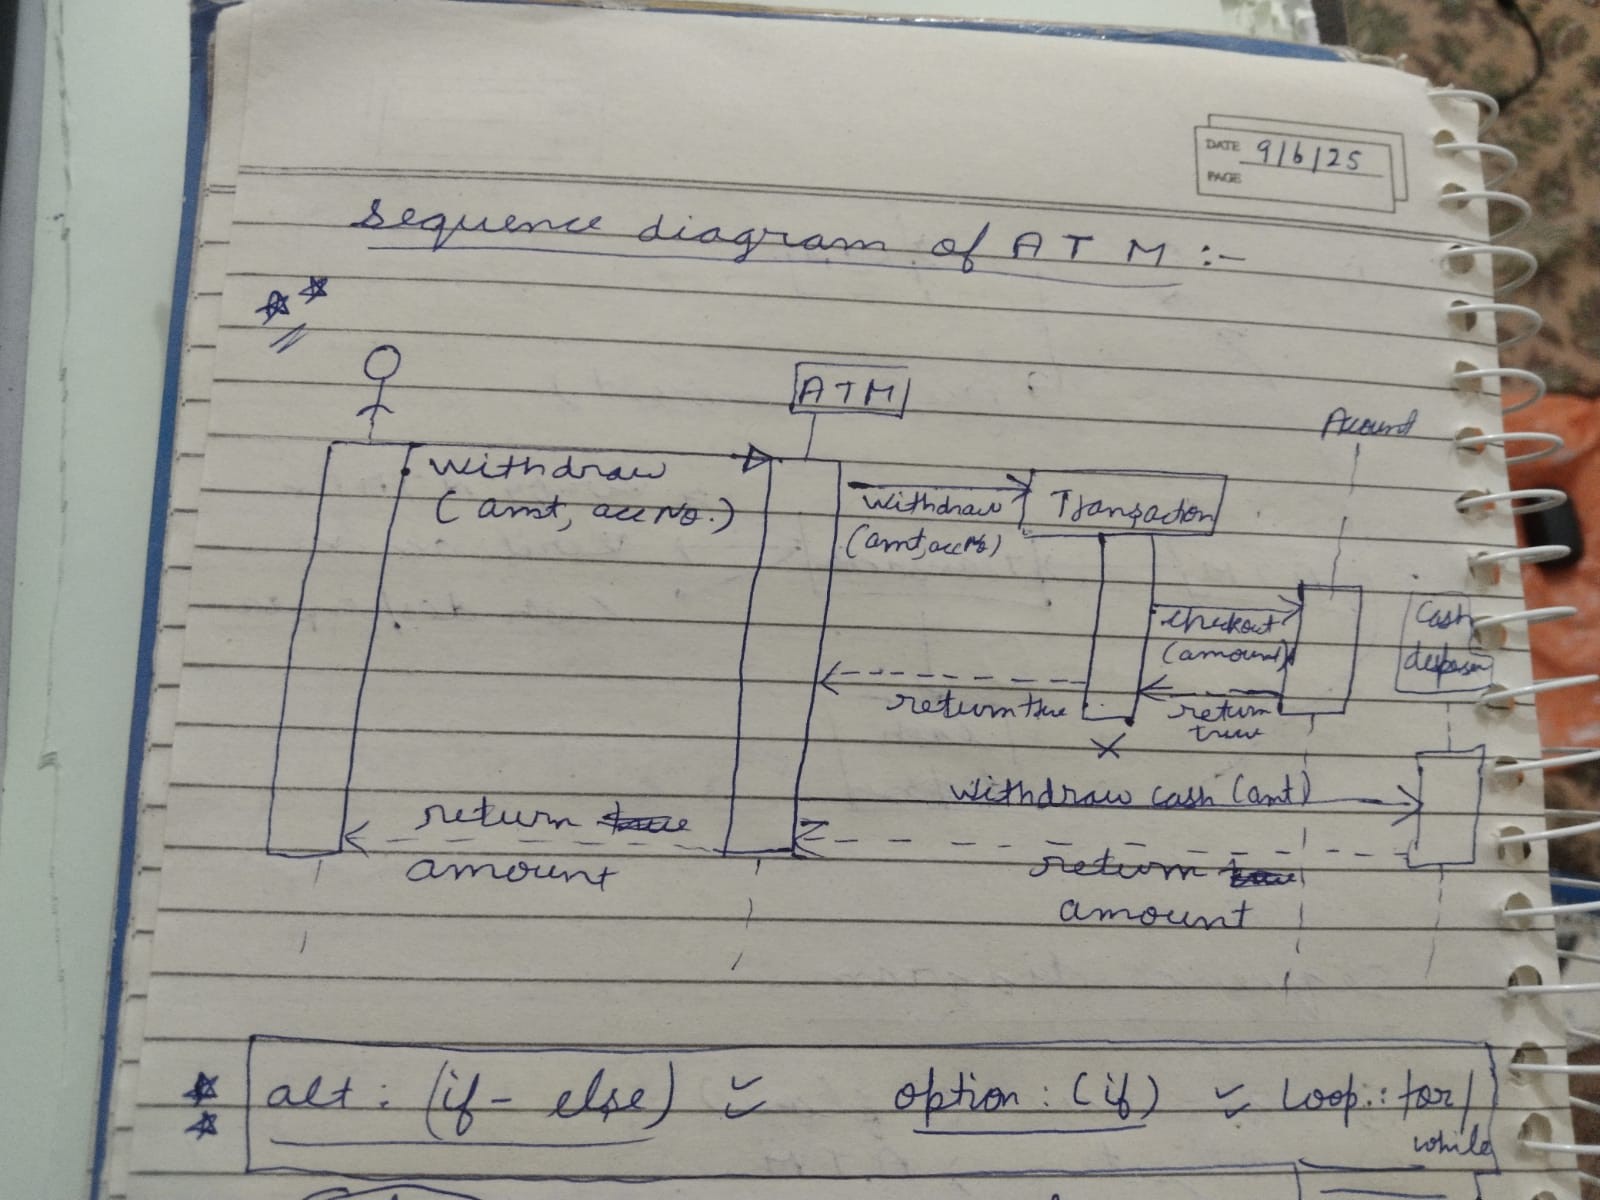 DATE 9/6/25
PAGE
Sequence diagram of ATM :-
ATM
Account
withdraw
(amt, acc No.)
withdraw
(amt, acc No)
Transaction
checkout
(amount)
Cash
return true
return
true
withdraw cash (amt)
return true
amount
return true
amount
alt : (if - else)
option : (if)
Loop : for/
while